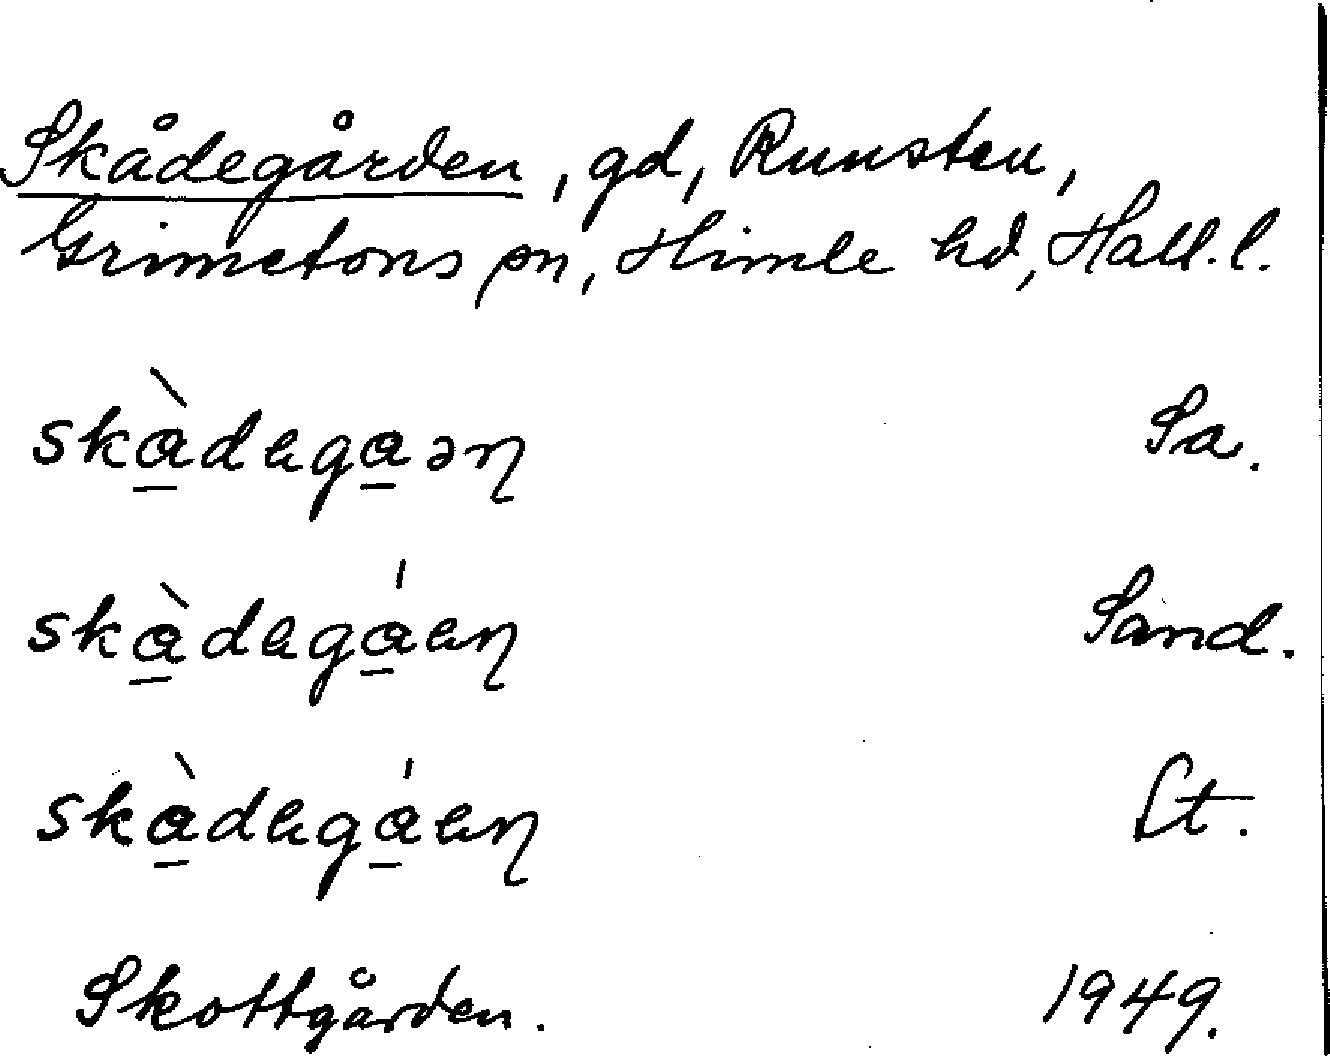 Skådegården, gd, Runsten,
Grimetons sn, Himle hd, Hall. l.
skàdegaəɳ Sa.
skàdegáeɳ Sand.
skàdegáeɳ St.
Skottgården. 1949.